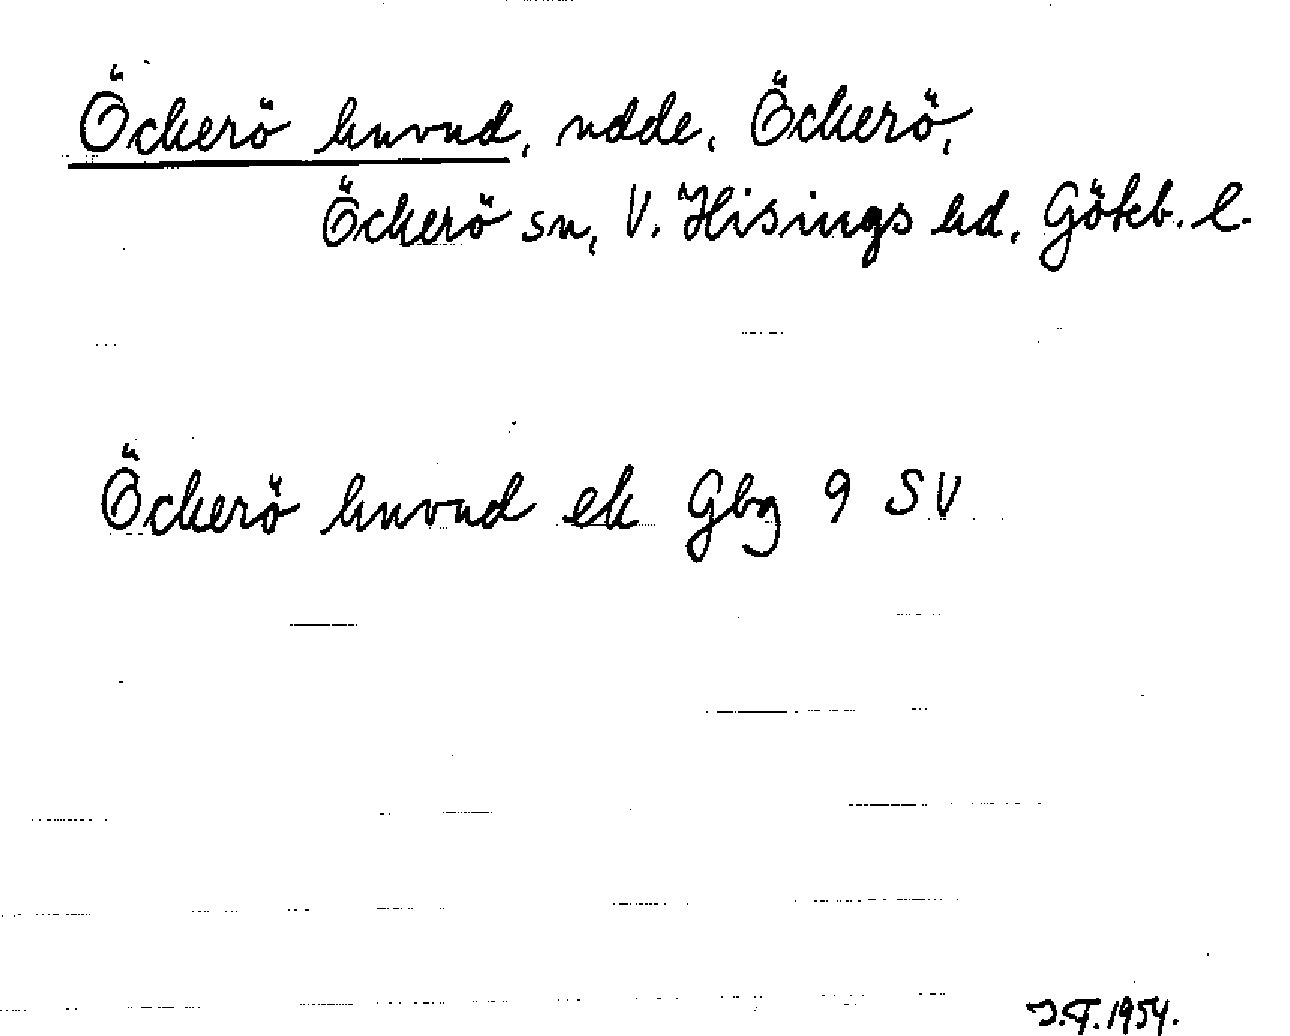 Öckerö huvud, udde, Öckerö,
Öckerö sn, V. Hisings hd, Göteb. l.
Öckerö huvud ek Gbg 9 SV
1954.